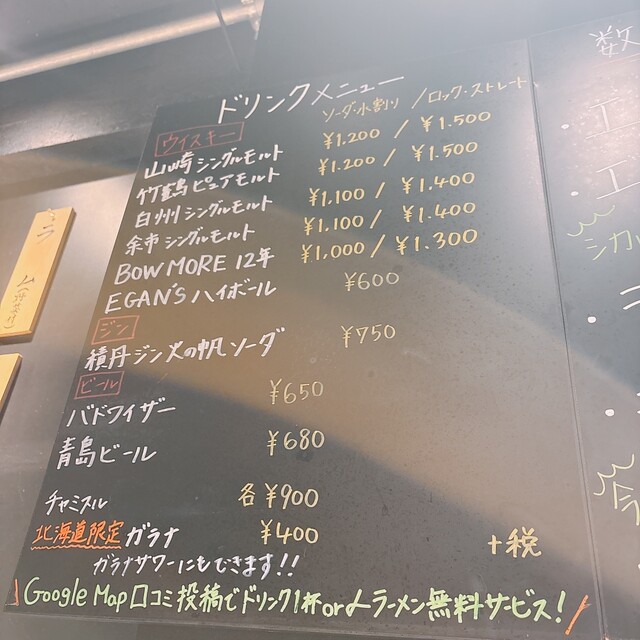 ドリンクメニュー
ソーダ・水割り / ロック・ストレート
ウイスキー
山崎シングルモルト ¥1.200 / ¥1.500
竹鶴ピュアモルト ¥1.200 / ¥1.500
白州シングルモルト ¥1,100 / ¥1.400
余市シングルモルト ¥1,100 / ¥1.400
BOWMORE 12年 ¥1,000 / ¥1.300
EGAN'S ハイボール ¥600
ジン
積丹ジン火の帆ソーダ ¥750
ビール
バドワイザー ¥650
青島ビール ¥680
チャミスル 各¥900
北海道限定 ガラナ ¥400
ガラナサワーにもできます!!
+税
Google Map口コミ投稿でドリンク1杯orよラーメン無料サービス!
ラム
数
・エ
・エ
シカ
今